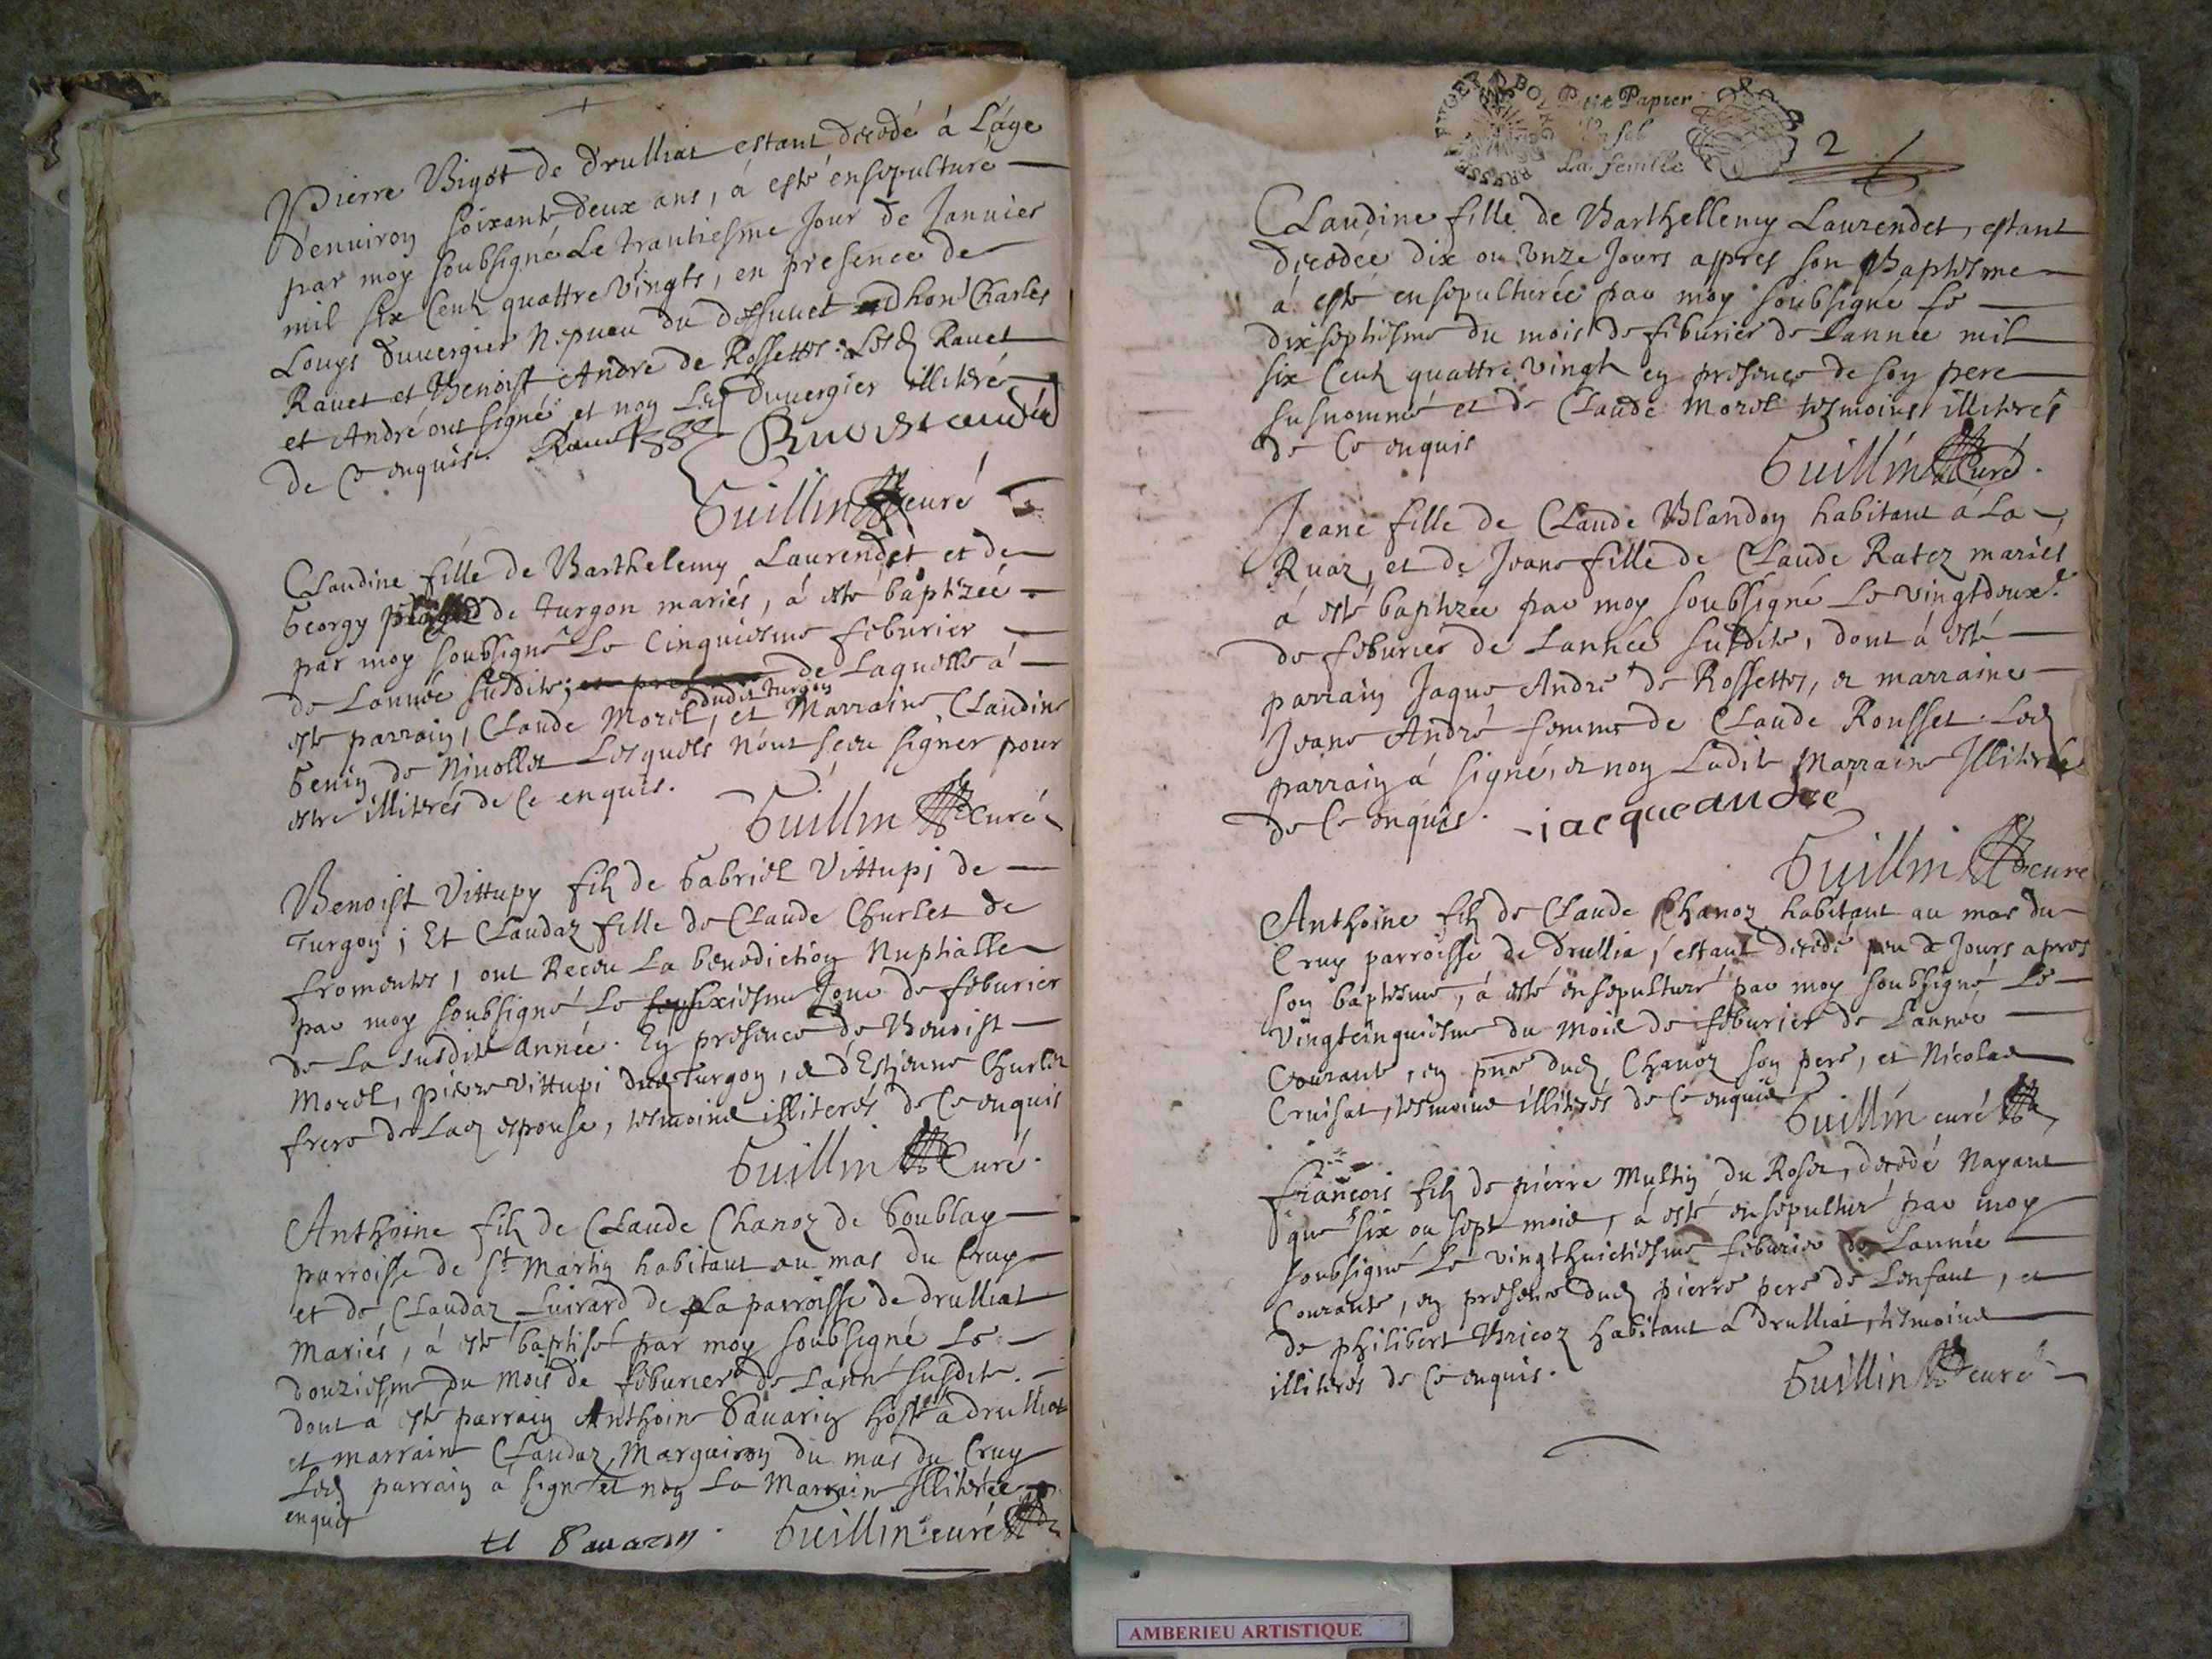 Pierre Bigot de Drulliat estant decedé à L'age
d'enuiron soixante deux ans, à esté ensepulturé
par moy soubsigné Le trantiesme Jour de Januier
mil six Cents quattre Vingts, en presence de
Louys Duuergier Nepueu du deffunct hon. Charles
Rauet et Benoist André de Rossettes. Lesd. Rauet
et André ont signé et non Led. Duuergier illiteré
de Ce enquis. Rauet Benoist andre
Guillin curé
Claudine fille de Barthelemy Laurendet et de
Georgy de Turgon mariés, à esté baptizée
par moy soubsigné Le Cinquiesme feburier
de L'année susdite, de Laquelle à
esté parrain, Claude Morel, dudit Turgon et Marraine Claudine
Genin de Niuollet Lesquels n'ont sceu signer pour
estre illiterés de Ce enquis.
Guillin Curé
Benoist Vittupy filz de Gabriel Vittupi de
Turgon; Et Claudaz fille de Claude Churlet de
fromentes, ont Receu La benediction Nuptialle
par moy soubsigné Le sixiesme Jour de feburier
de La susdite année. En presence de Benoist
Morel, pierre Vittupi dud. Turgon, et d'Estienne Churlet
frere de Lad. espouse, tesmoins illiterés de Ce enquis
Guillin Curé.
Anthoine filz de Claude Chanoz de Goublay
parroisse de St Martin habitant au mas du Cruy
et de Claudaz Luirard de La parroisse de drulliat
Mariés, à esté baptisé par moy soubsigné Le
douziesme du mois de feburier de L'anné susdite.
dont à esté parrain Anthoine Sauarin hoste à drulliat
et marraine Claudaz Marguiron du mas du Cruy
Led. parrain à signé et non La Marraine Illiterée
enquis
Guillin curé
Petit Papier
La feuille
2
Claudine fille de Barthellemy Laurendet, estant
decedée dix ou unze Jours apres son Baptesme
à esté ensepulturée par moy soubsigné Le
dixseptiesme du mois de feburier de L'année mil
six Cents quattre vingts en presence de son pere
susnommé et de Claude Morel tesmoins illiterés
de Ce enquis
Guillin Curé.
Jeane fille de Claude Blandon habitant à La
Ruaz, et de Jeane fille de Claude Ratez mariés
à esté baptizée par moy soubsigné Le vingtdeux.e
de feburier de L'année susdite, dont à esté
parrain Jaque André de Rossettes, et marraine
Jeane André femme de Claude Rousset. Led.
parrain à signé, et non Ladite Marraine Illiterée
de Ce enquis. iacque andre
Guillin curé
Anthoine filz de Claude Chanoz habitant au mas du
Cruy parroisse de drullia, estant decedé peu de Jours apres
son baptesme, à esté ensepulturé par moy soubsigné Le
Vingtcinquiesme du Mois de feburier de L'année
Courante, en pnce dud. Chanoz son pere, et Nicolas
Cruisat, tesmoins illiterés de Ce enquis
Guillin curé
françois filz de pierre Multin du Roset, decedé Nayant
que six ou sept mois, à esté ensepulturé par moy
soubsigné Le vingthuictiesme feburier de L'année
Courante, en presence dud. pierre pere de L'enfant, et
de philibert Bricoz habitant à Drulliat, tesmoins
illiterés de Ce enquis.
Guillin curé
AMBERIEU ARTISTIQUE